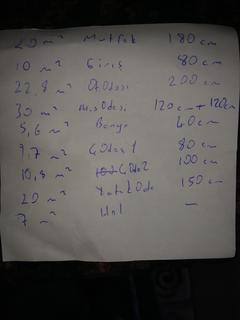 20 m² Mutfak 180 cm
10 m² Giriş 80 cm
22,8 m² O.Odası 200 cm
30 m² Mis.Odası 120 cm + 120cm
5,6 m² Banyo 40 cm
9,7 m² Ç.Odası 1 80 cm
10,8 m² Ç.Oda 2 100 cm
20 m² Yatak Oda 150 cm
7 m² Hol —